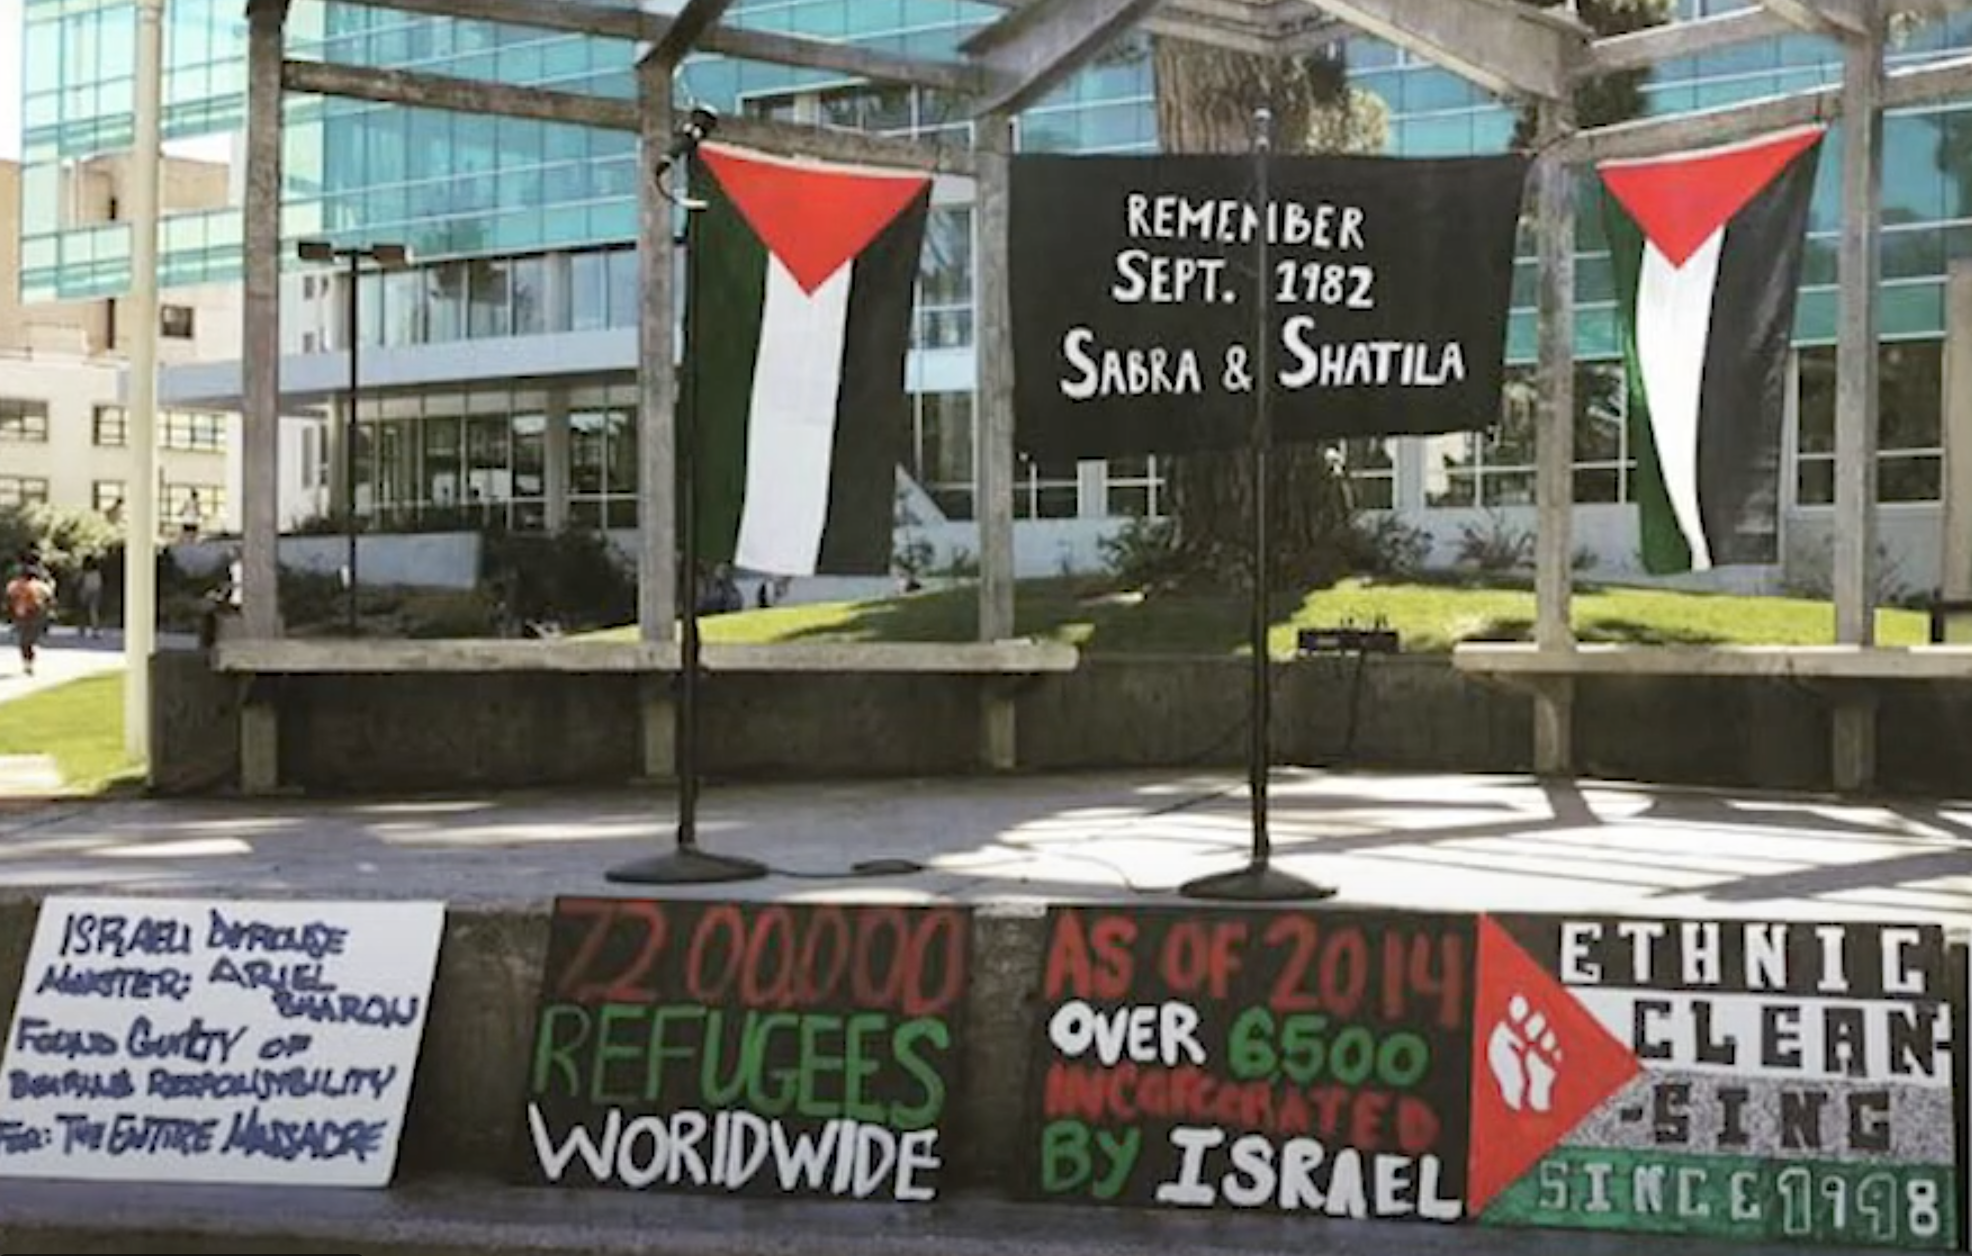 REMEMBER
SEPT. 1982
SABRA & SHATILA
ISRAELI DEFENSE
MINISTER: ARIEL
SHARON
FOUND GUILTY OF
BEARING RESPONSIBILITY
FOR: THE ENTIRE MASSACRE
7200,000
REFUGEES
WORLDWIDE
AS OF 2014
OVER 6500
INCARCERATED
BY ISRAEL
ETHNIC
CLEAN-
-SING
SINCE 1948